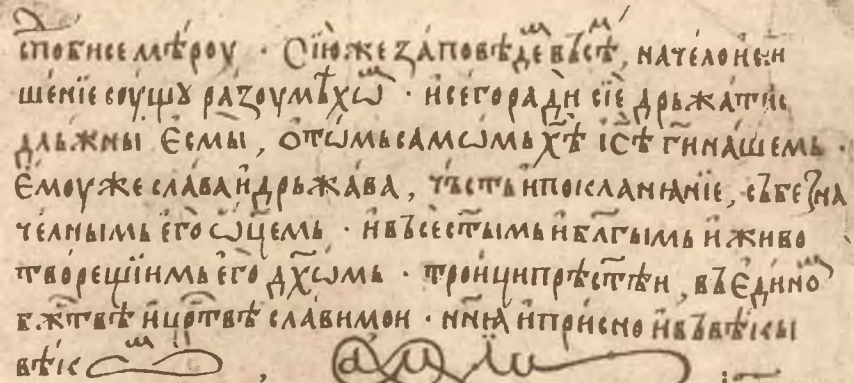 спо́бисе мѣ́роу · Сїю́же за́повѣде въсѣ́мь, наче́ло и҆ сьврь
ше́нїе соу́щꙋ разоумѣ́хѡⷨ · и҆ сего́ ради сїѐ дрьжа́тисе
дль́жны є҆смы̀, ѻ҆ то́мь самѡ́мь х҃ѣ і҆с҃ѣ г҃и на́шемь ·
є҆мо́уже сла́ва и҆ дрьжа́ва, чь́сть и҆ покланꙗ́нїе, съ безна
че́лнымь е҆го̀ ѡ҆ц҃емь · и҆ въсес҃ты́мь и҆ бл҃гы́мь и҆ живо
творе́щїимь е҆го̀ д҃хѡмь · тро́ици прѣс҃тѣ́и, въ є҆ди́нѡⷨ
бж҃твѣ̀ и҆ цр҃твѣ̀ сла́вимои · нн҃ꙗ и҆ при́сно и҆ въ вѣ́кы
вѣ́кѡⷨ, а҆ми́нь